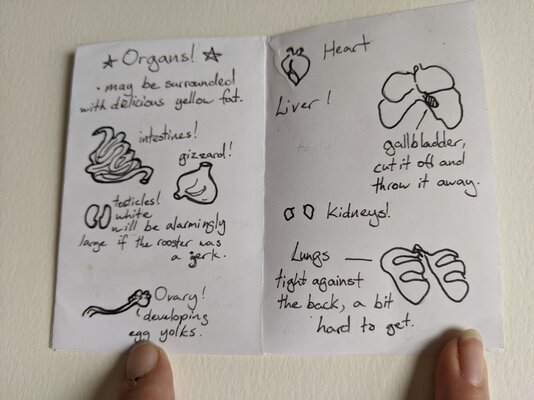 ☆ Organs! ☆
• may be surrounded
with delicious yellow fat.
intestines!
gizzard!
testicles!
white
will be alarmingly
large if the rooster was
a jerk.
Ovary!
developing
egg yolks.
Heart
Liver!
gallbladder,
cut it off and
throw it away.
Kidneys!
Lungs
tight against
the back, a bit
hard to get.